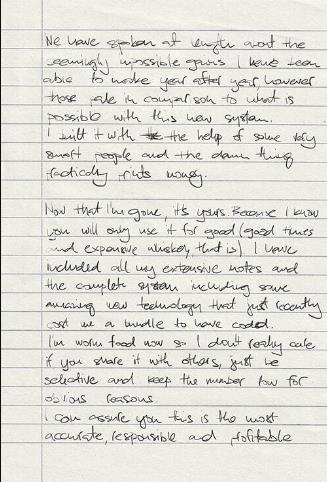 We have spoken at length about the
seemingly impossible gains I have been
able to make year after year, however
those pale in comparison to what is
possible with this new system.
I built it with the help of some very
smart people and the damn thing
radically prints money.
Now that I'm gone, it's yours. Because I know
you will only use it for good (good times
and expensive whiskey, that is) I have
included all my extensive notes and
the complete system including some
amazing new technology that just recently
cost me a bundle to have coded.
I'm worm food now so I don't really care
if you share it with others, just be
selective and keep the number low for
obvious reasons.
I can assure you this is the most
accurate, responsible and profitable